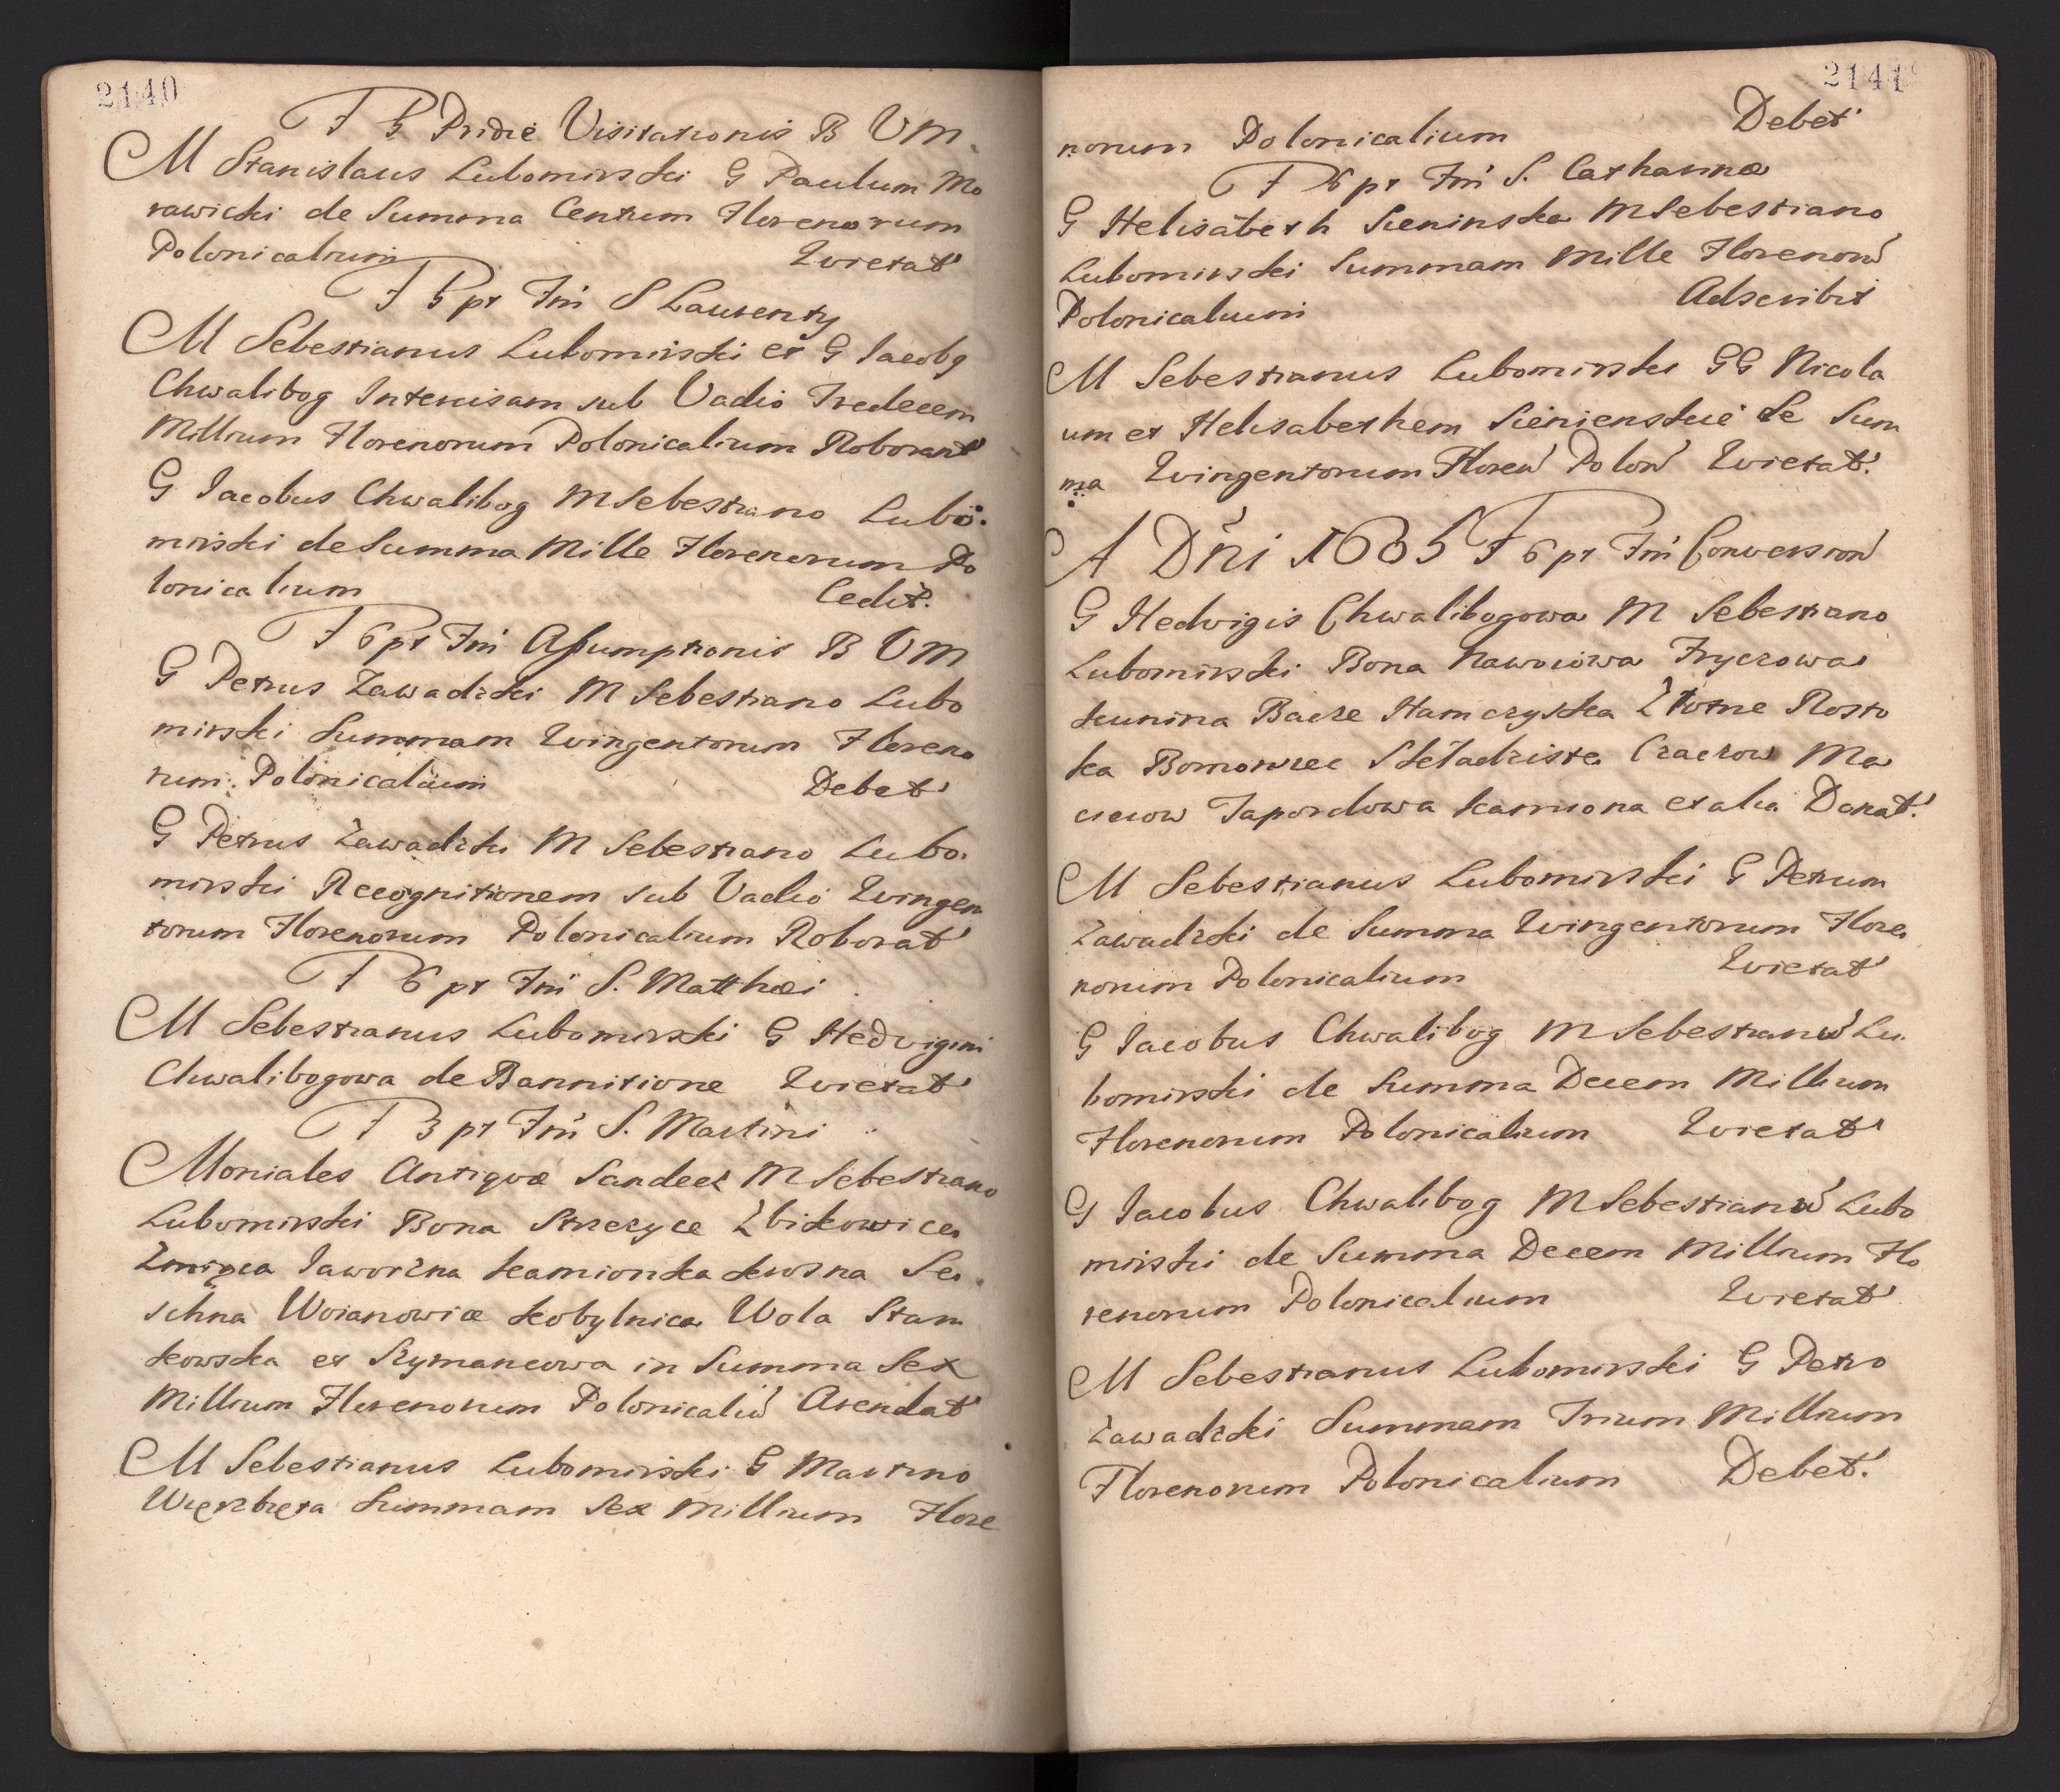 2140
F 5 Pridie Visitationis B V M
M Stanislaus Lubomirski G Paulum Mo
rawicki de Summa Centum Florenorum
Polonicalium Qvietat
F 5 pt Fm S Laurenty
M Sebestianus Lubomirski et G Iacoby
Chwalibog Intercisam sub Vadio Tredecem
Millium Florenorum Polonicalium Roborant
G Iacobus Chwalibog M Sebestiano Lubo
mirski de Summa Mille Florenorum Po
lonicalium Cedit.
F 6 pt Fm Assumptionis B V M
G Petrus Zawadzki M Sebestiano Lubo
mirski Summam Qvingentorum Floreno
rum Polonicalium Debet
G Petrus Zawadzki M Sebestiano Lubo
mirski Recognitionem sub Vadio Qvingen
torum Florenorum Polonicalium Roborat
F 6 pt Fm S. Matthæi
M Sebestianus Lubomirski G Hedvigim
Chwalibogowa de Bannitione Qvietat
F 3 pt Fm S. Martini
Moniales Antiqvæ Sandecz M Sebestiano
Lubomirski Bona Strzezyce Zbikowice
Zmiąca Iaworzna Kamionka Krosna Se
schna Woianowice Kobylnica Wola Stam
kowska et Szymancowa in Summa Sex
Millium Florenorum Polonicaliu Arendat
M Sebestianus Lubomirski G Martino
Wierzbięta Summam Sex Millium Flore
2141
norum Polonicalium Debet
F 6 pt Fm S. Catharinæ
G Helisabeth Sieninska M Sebestiano
Lubomirski Summam Mille Florenoru
Polonicalium Adscribit
M Sebestianus Lubomirski GG Nicola
um et Helisabethem Sienienskie de Sum
ma Qvingentorum Floren Polon Qvietat.
A Dni 1605 F 6 pt Fm Conversion
G Hedvigis Chwalibogowa M Sebestiano
Lubomirski Bona Nawoiowa Frycowa
Kunina Bacze Hamczyska Złotne Rosto
ka Bomowzec Składziste Czaczow Ma
ciciow Tapordowa Kamiona et alia Donat.
M Sebestianus Lubomirski G Petrum
Zawadzki de Summa Qvingentorum Flore
norum Polonicalium Qvietat
G Iacobus Chwalibog M Sebestianu Lu
bomirski de Summa Decem Millium
Florenorum Polonicalium Qvietat
G Iacobus Chwalibog M Sebestianu Lubo
mirski de Summa Decem Millium Flo
renorum Polonicalium Qvietat
M Sebestianus Lubomirski G Petro
Zawadzki Summam Trium Millium
Florenorum Polonicalium Debet.